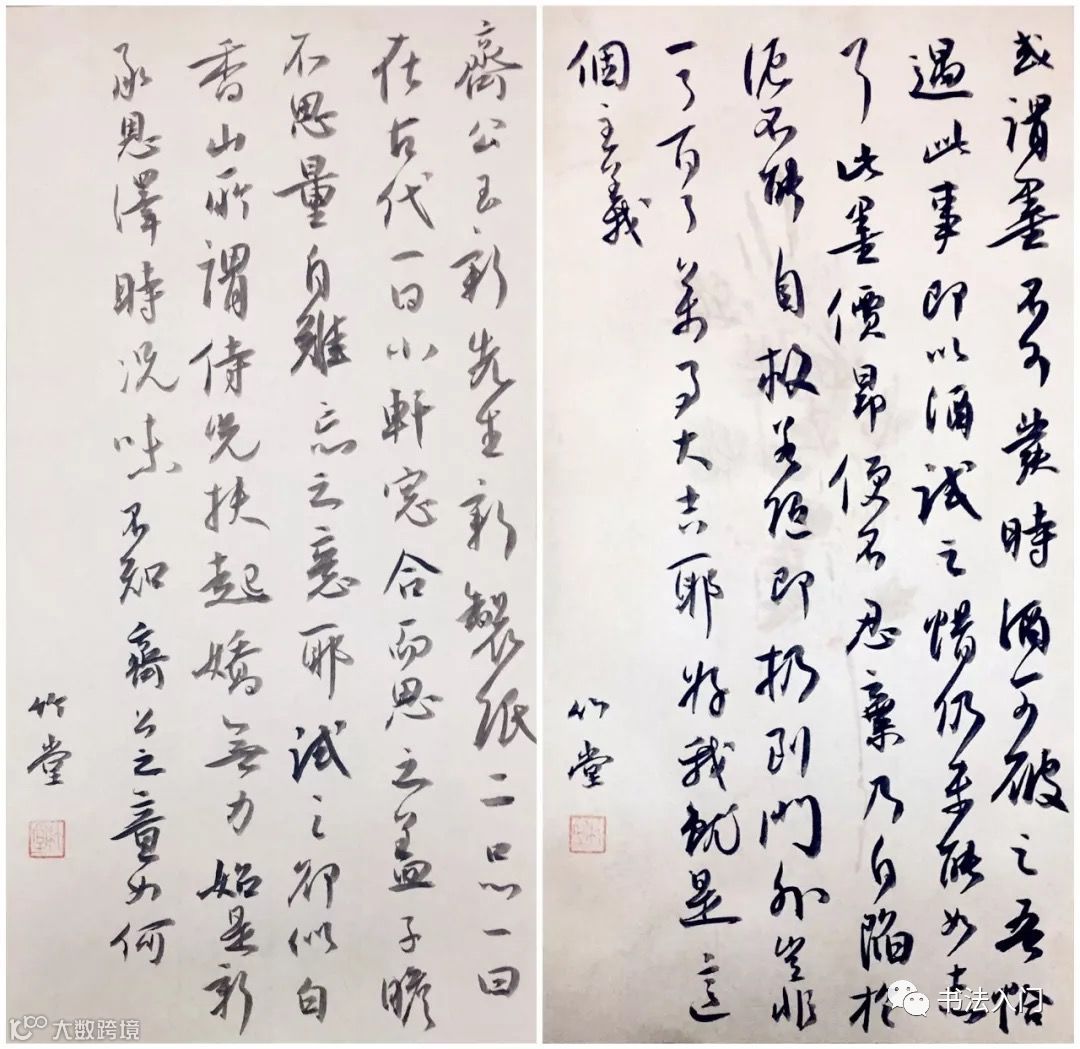 或謂墨不可發時酒可破之吾恰
遇此事即以酒試之惜仍未能如意
了此墨價昂便不忍棄乃自陷於
泥不能自拔若即扔到門外豈非
一了百了萬事大吉耶我就是這
個主義
竹堂
齋公玉新先生新製紙二品一曰
在古代一曰小軒窓合而思之蓋子瞻
不思量自難忘之意耶試之卻似白
香山所謂侍兒扶起嬌無力始是新
承恩澤時況味不知齋公之意如何
竹堂
书法入门
大数跨境